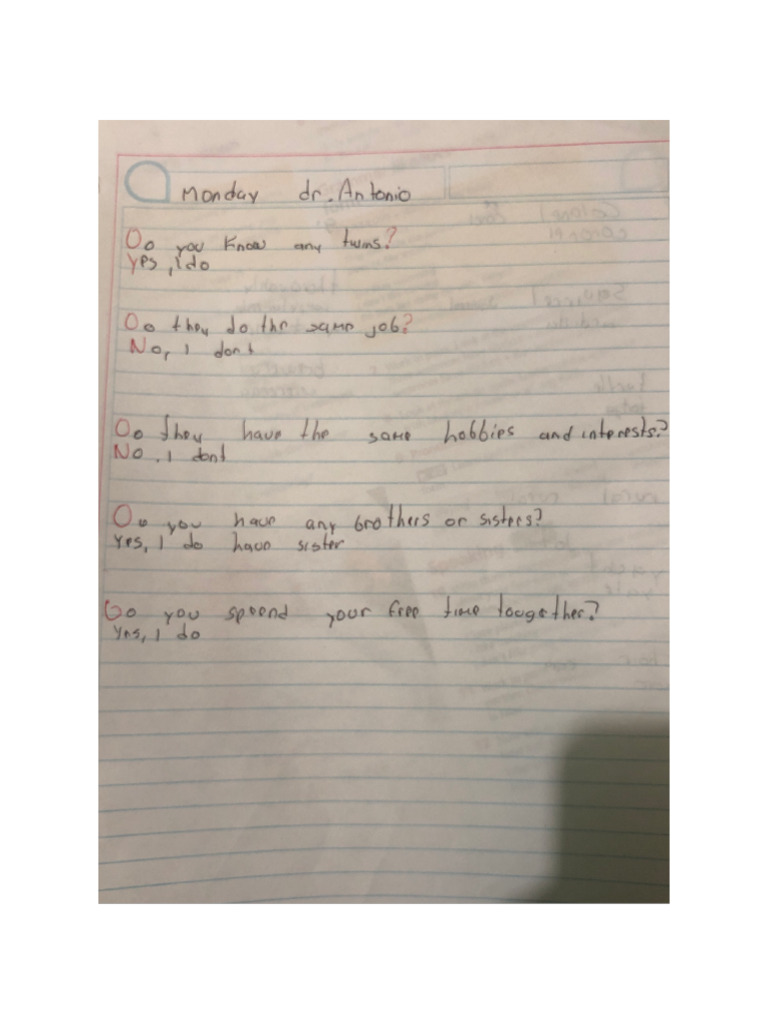 Monday dr. Antonio
Do you Know any twins?
Yes, I do
Do they do the same job?
No, I dont
Do they have the same hobbies and interests?
No. I dont
Do you have any brothers or sisters?
Yes, I do have sister
Do you speend your free time tougether?
Yes, I do